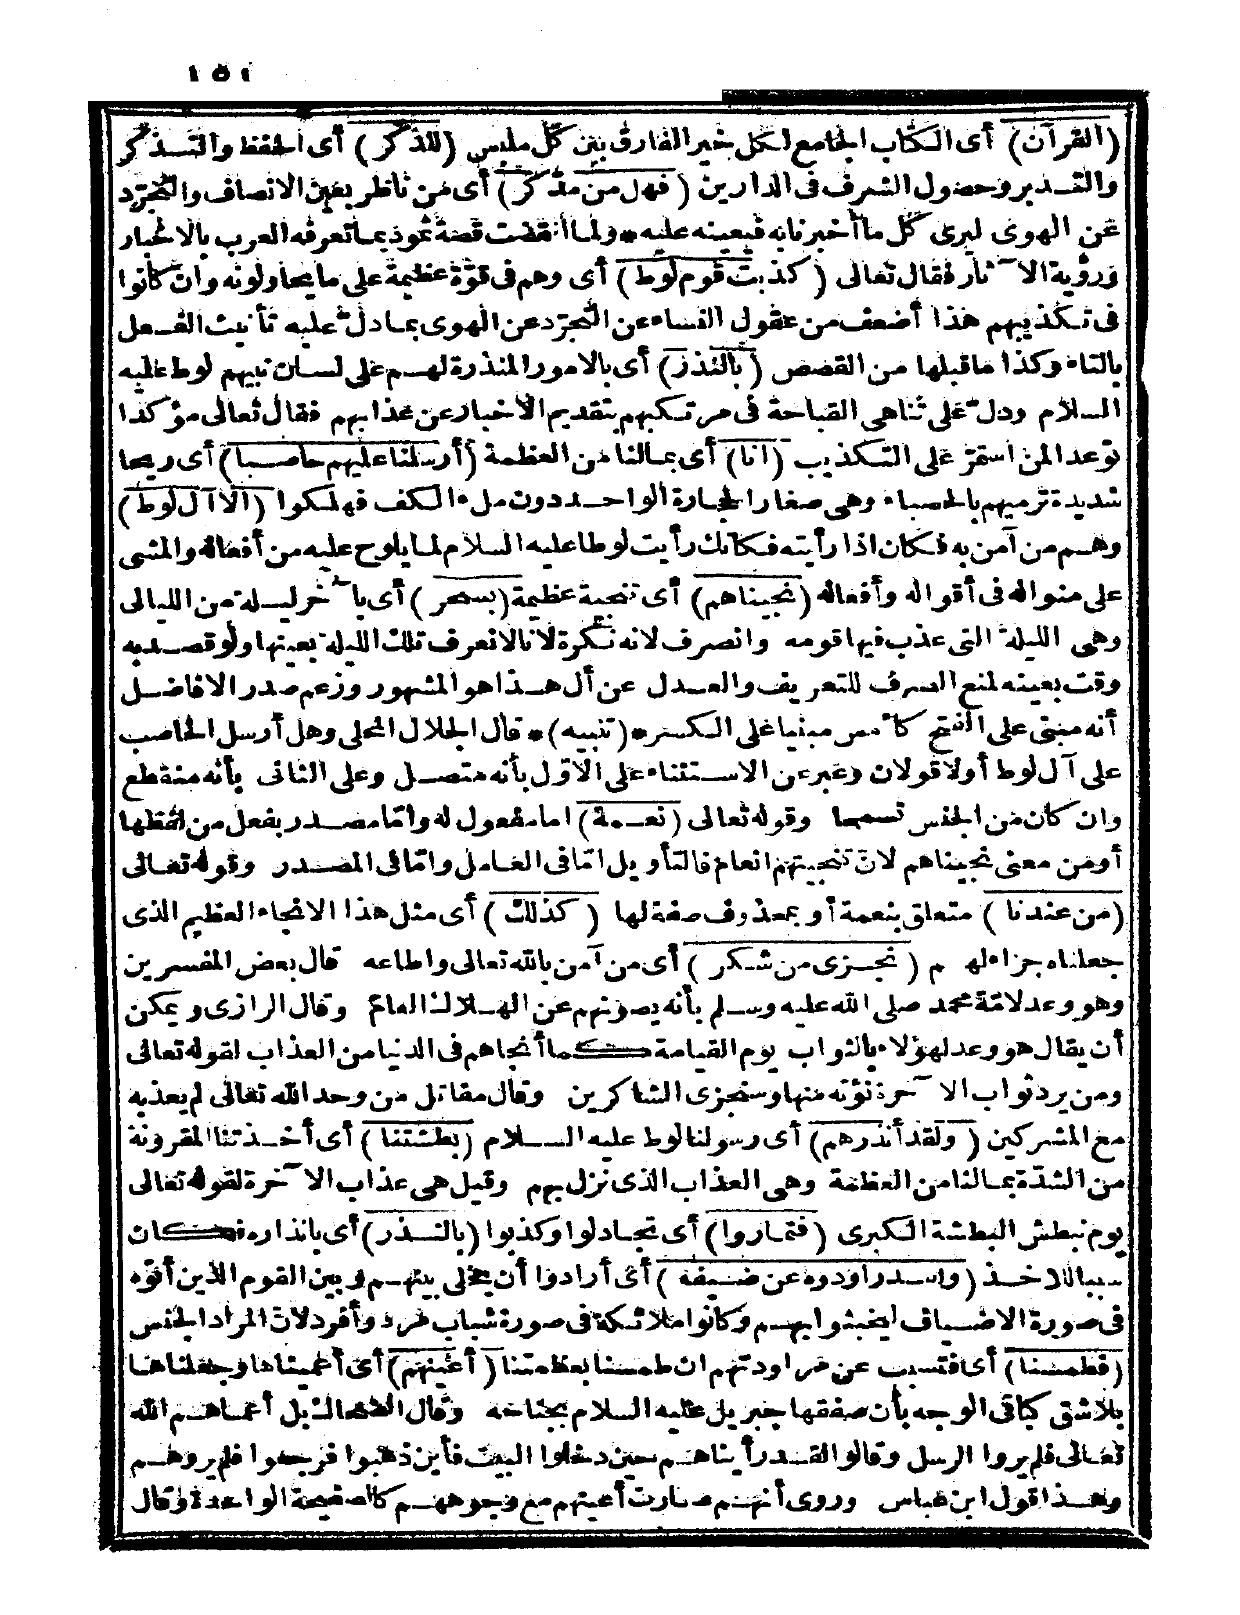 ١٥١
(القرآن) أى الكتاب الجامع لكل خير الفارق بين كل ملبس (للذكر) أى الحفظ والتذكر
والتدبر وحصول الشرف فى الدارين (فهل من مدّكر) أى من ناظر بعين الانصاف والتجرّد
عن الهوى ليرى كل ما أخبرنا به فيعينه عليه * ولما انقضت قصة ثمود بما تعرفه العرب بالاخبار
ورؤية الآثار فقال تعالى (كذبت قوم لوط) أى وهم فى قوّة عظيمة على ما يحاولونه وان كانوا
فى تكذيبهم هذا أضعف من عقول النساء عن التجرّد عن الهوى بما دلّ عليه تأنيث الفعل
بالتاء وكذا ما قبلها من القصص (بالنذر) أى بالامور المنذرة لهم على لسان نبيهم لوط عليه
السلام ودلّ على تناهى القباحة فى مرتكبهم بتقديم الاخبار عن عذابهم فقال تعالى مؤكدا
توعدا لمن استمرّ على التكذيب (انا) أى بما لنا من العظمة (أرسلنا عليهم حاصبا) أى ريحا
شديدة ترميهم بالحصباء وهى صغار الحجارة الواحد دون ملء الكف فهلكوا (الا آل لوط)
وهم من آمن به فكان اذا رأيته فكأنك رأيت لوطا عليه السلام لما يلوح عليه من أفعاله والمشى
على منواله فى أقواله وأفعاله (نجيناهم) أى تنجية عظيمة (بسحر) أى بآخر ليلة من الليالى
وهى الليلة التى عذب فيها قومه وانصرف لانه نكرة لانا لا نعرف تلك الليلة بعينها ولو قصد به
وقت بعينه لمنع الصرف للتعريف والعدل عن أل هذا هو المشهور وزعم صدر الافاضل
أنه مبنىّ على الفتح كامس مبنيا على الكسر * (تنبيه) * قال الجلال المحلى وهل أرسل الحاصب
على آل لوط أولا قولان وعبر عن الاستثناء على الاوّل بأنه متصل وعلى الثانى بأنه منقطع
وان كان من الجنس تسمحا وقوله تعالى (نعمة) اما مفعول له وامّا مصدر بفعل من لفظها
أو من معنى نجيناهم لانّ تنجيتهم انعام فالتأويل امّا فى العامل وامّا فى المصدر وقوله تعالى
(من عندنا) متعلق بنعمة أو بمحذوف صفة لها (كذلك) أى مثل هذا الانجاء العظيم الذى
جعلناه جزاء لهم (نجزى من شكر) أى من آمن بالله تعالى وأطاعه قال بعض المفسرين
وهو وعد لامّة محمد صلى الله عليه وسلم بأنه يصونهم عن الهلاك العامّ وقال الرازى ويمكن
أن يقال هو وعد لهؤلاء بالثواب يوم القيامة كما أنجاهم فى الدنيا من العذاب لقوله تعالى
ومن يرد ثواب الآخرة نؤته منها وسنجزى الشاكرين وقال مقاتل من وحد الله تعالى لم يعذبه
مع المشركين (ولقد أنذرهم) أى رسولنا لوط عليه السلام (بطشتنا) أى أخذتنا المقرونة
من الشدّة بما لنا من العظمة وهى العذاب الذى نزل بهم وقيل هى عذاب الآخرة لقوله تعالى
يوم نبطش البطشة الكبرى (فتماروا) أى تجادلوا وكذبوا (بالنذر) أى بانذاره فكان
سببا للاخذ (ولقد راودوه عن ضيفه) أى أرادوا أن يخلى بينهم وبين القوم الذين أتوه
فى صورة الاضياف ليخبثوا بهم وكانوا ملائكة فى صورة شباب مرد وأفرد لانّ المراد الجنس
(فطمسنا) أى فتسبب عن مراودتهم ان طمسنا بعظمتنا (أعينهم) أى أعميناها وجعلناها
بلا شق كباقى الوجه بأن صفقها جبريل عليه السلام بجناحه وقال الضحاك بل أعماهم الله
تعالى فلم يروا الرسل وقالوا لقد رأيناهم حين دخلوا البيت فأين ذهبوا فرجعوا فلم يروهم
وهذا قول ابن عباس وروى أنهم صارت أعينهم مع وجوههم كالصفيحة الواحدة وقال